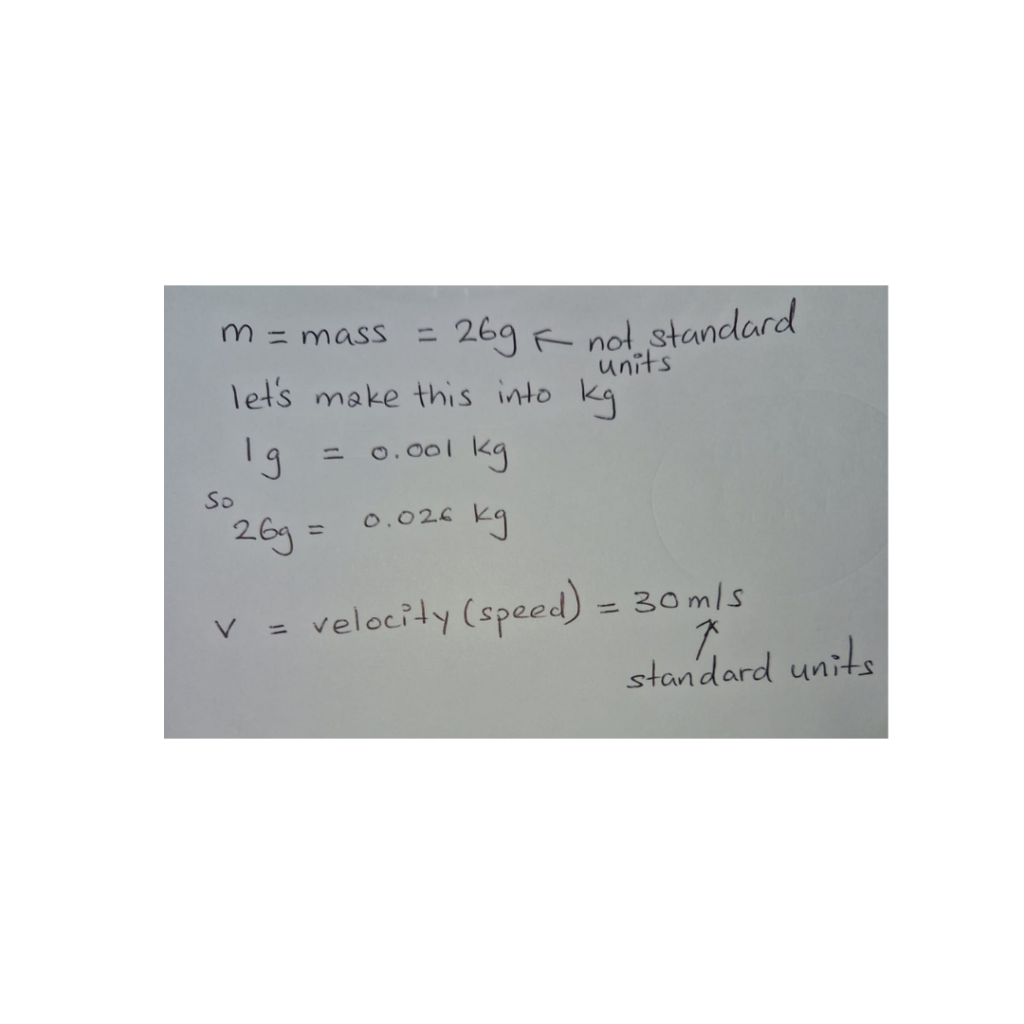 m = mass = 26g ← not standard
units
let's make this into kg
1g = 0.001 kg
so
26g = 0.026 kg
v = velocity (speed) = 30m/s
↑
standard units